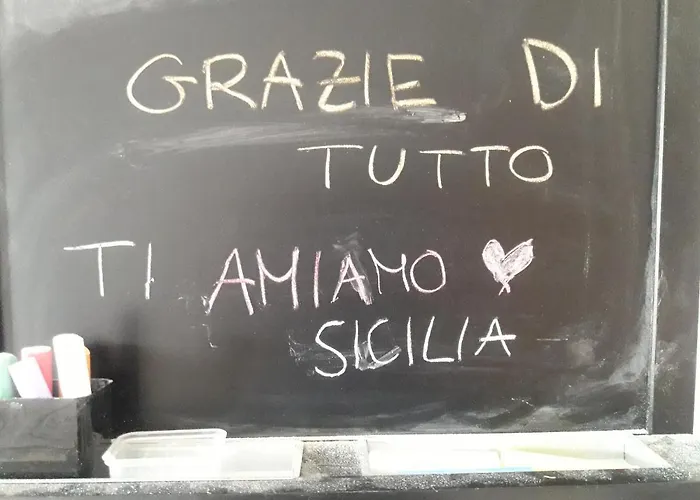 GRAZIE DI
TUTTO
TI AMIAMO
SICILIA